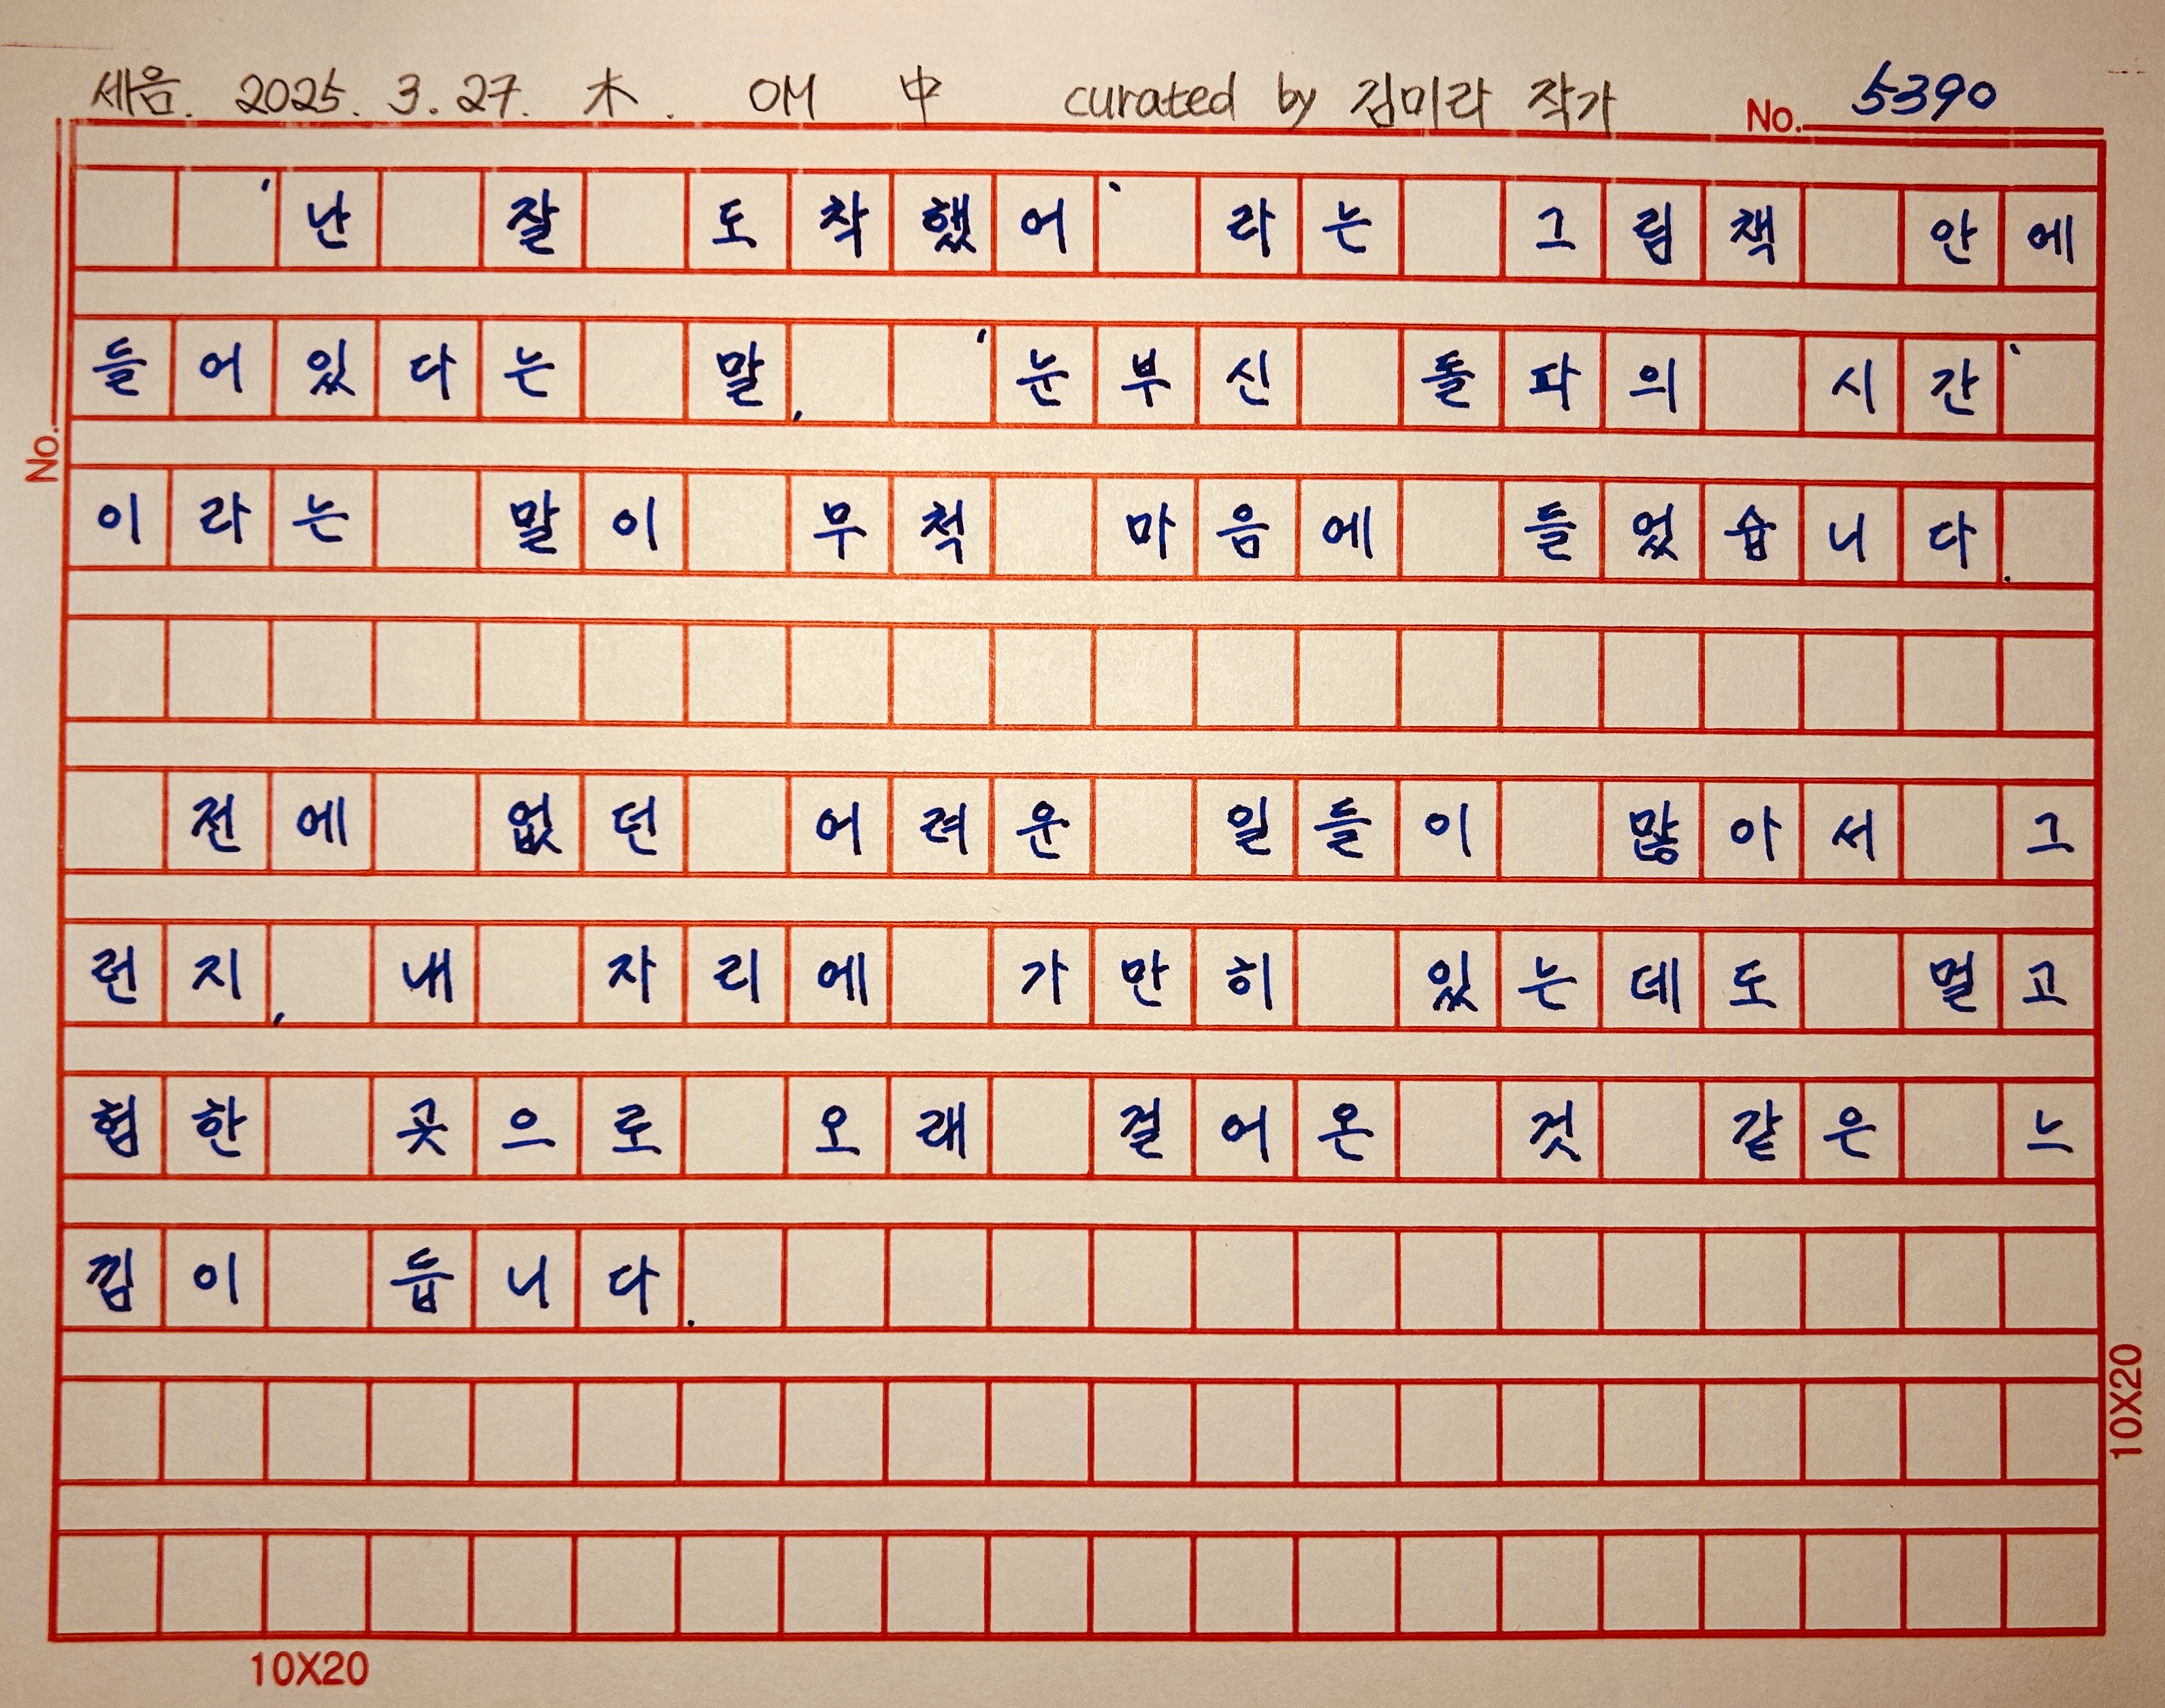 세음. 2025. 3. 27. 木. OM 中 curated by 김미라 작가 No. 5390
'난 잘 도착했어' 라는 그림책 안에
들어있다는 말, '눈부신 돌파의 시간'
이라는 말이 무척 마음에 들었습니다.
전에 없던 어려운 일들이 많아서 그
런지, 내 자리에 가만히 있는데도 멀고
험한 곳으로 오래 걸어온 것 같은 느
낌이 듭니다.
No.
10X20
10X20